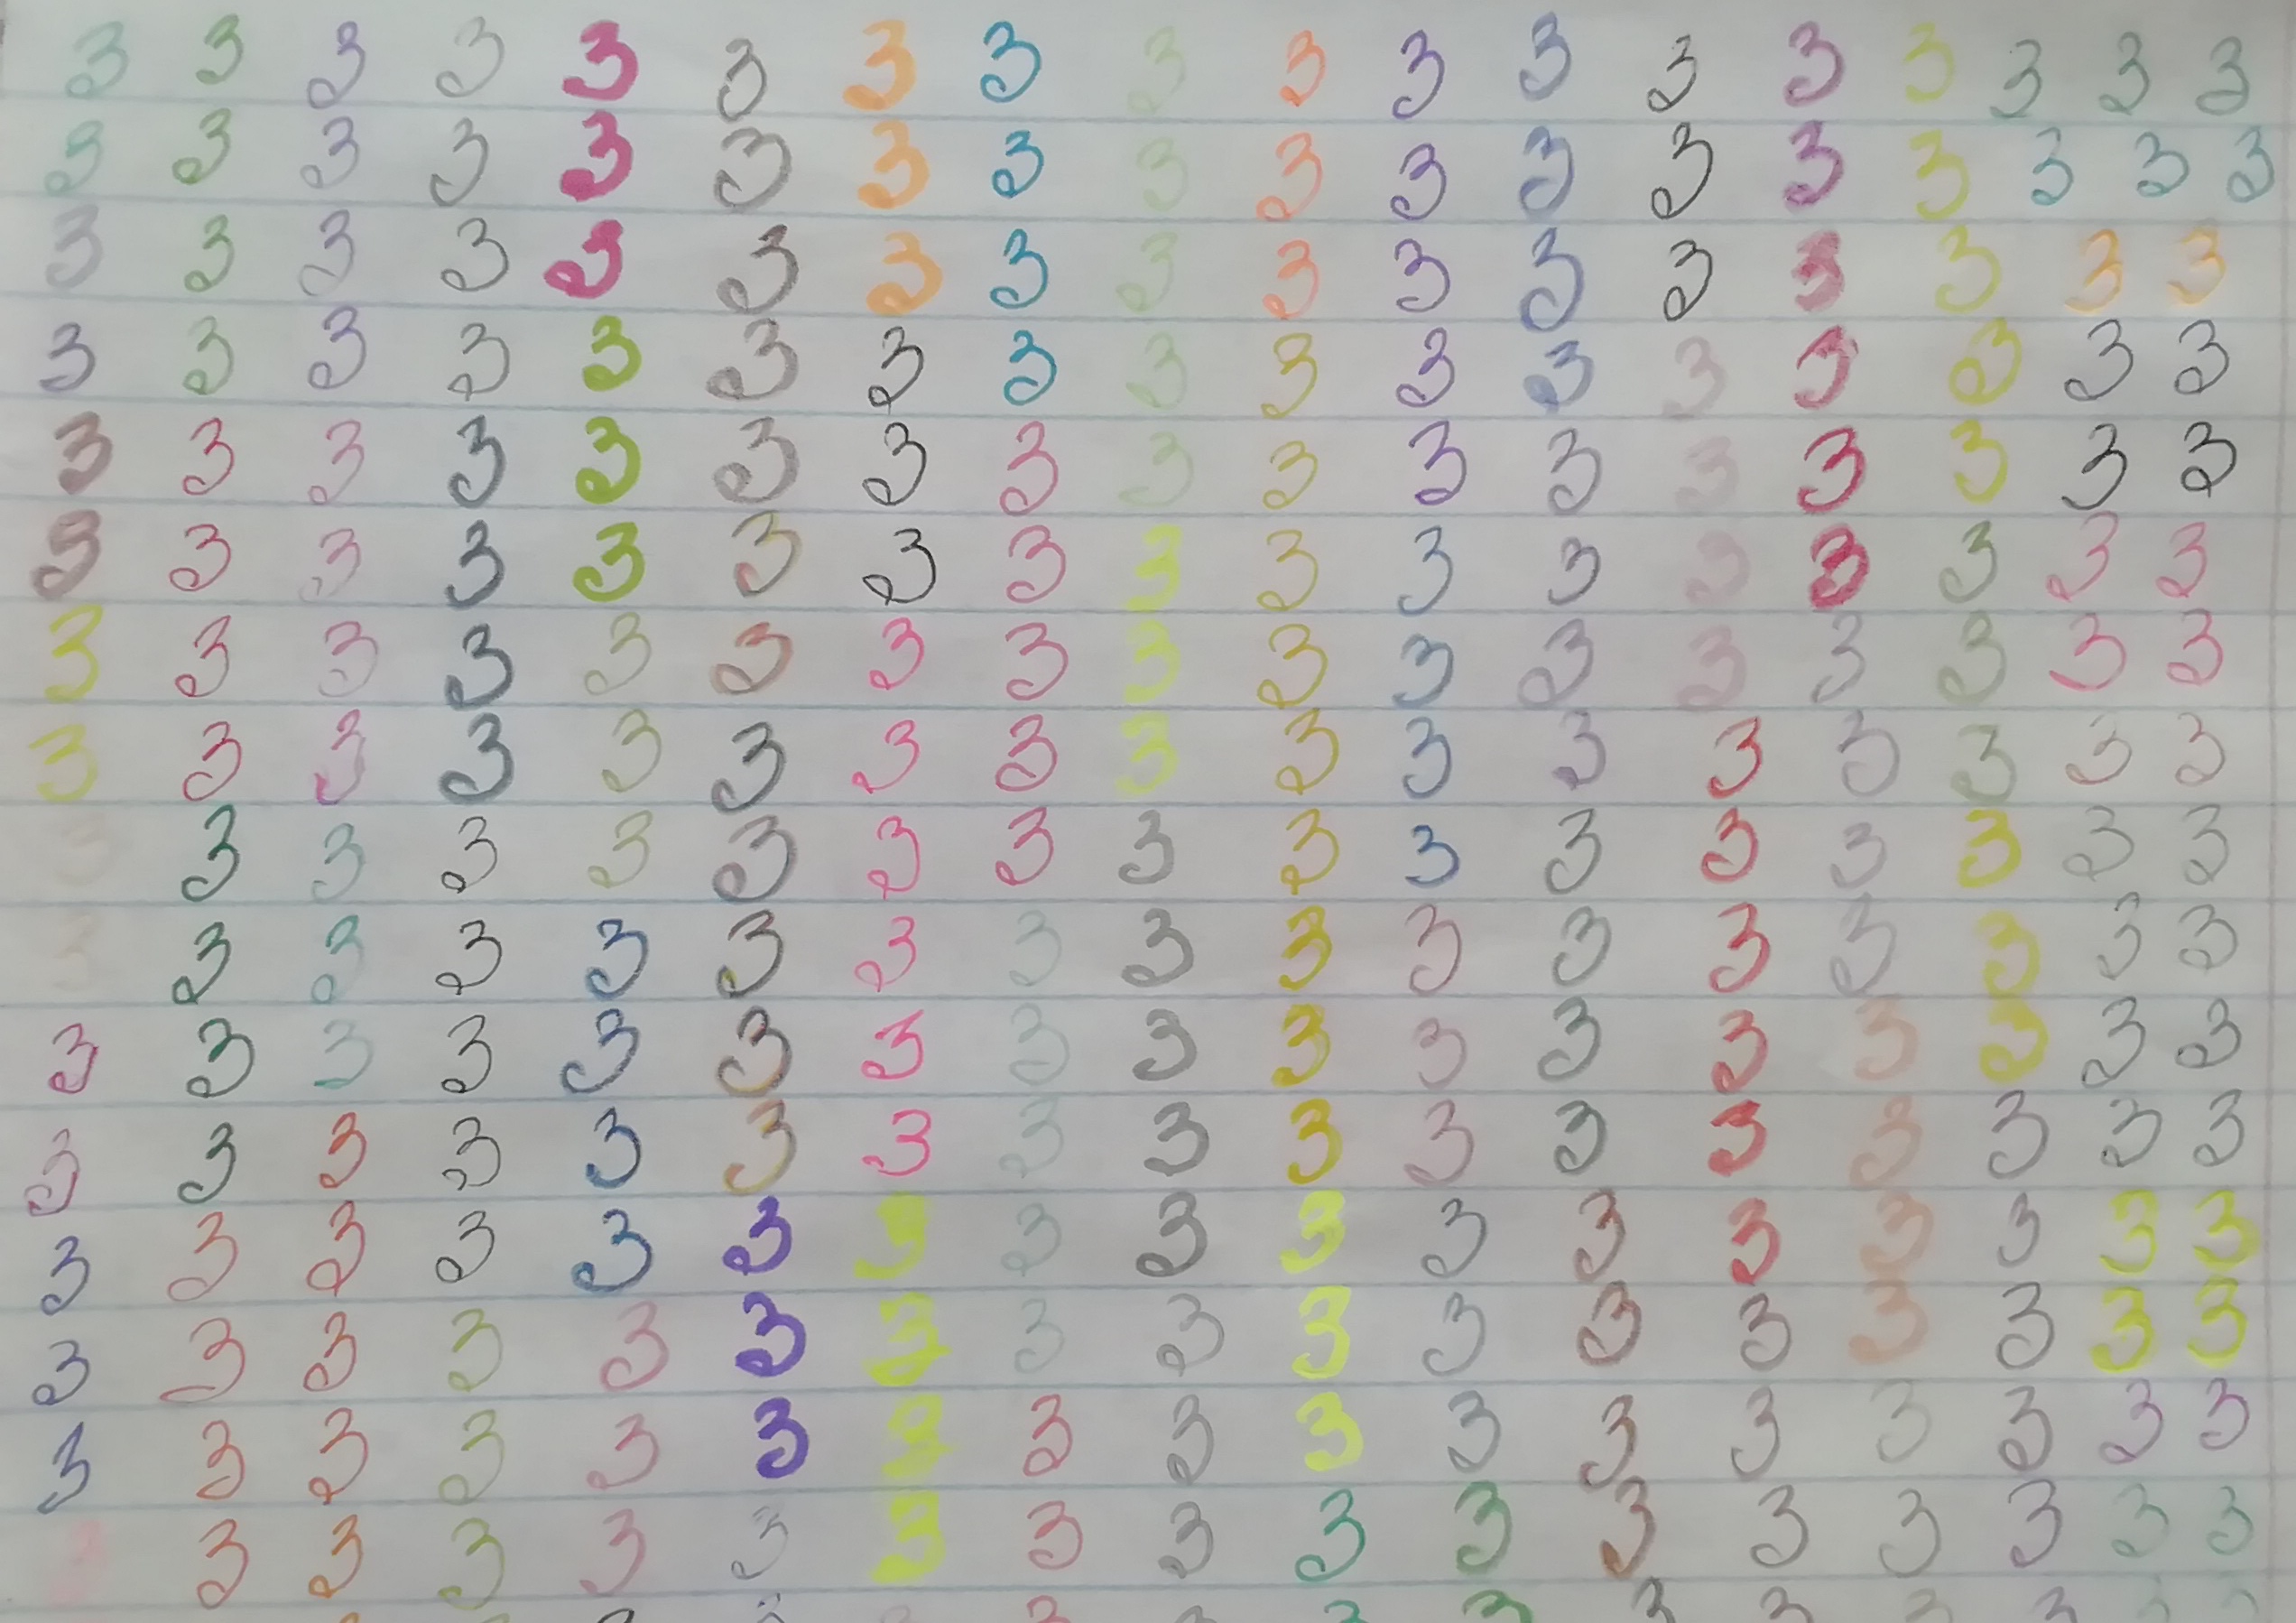 3 3 3 3 3 3 3 3 3 3 3 3 3 3 3 3 3 3
3 3 3 3 3 3 3 3 3 3 3 3 3 3 3 3 3 3
3 3 3 3 3 3 3 3 3 3 3 3 3 3 3 3 3
3 3 3 3 3 3 3 3 3 3 3 3 3 3 3 3 3
3 3 3 3 3 3 3 3 3 3 3 3 3 3 3 3 3
3 3 3 3 3 3 3 3 3 3 3 3 3 3 3 3 3
3 3 3 3 3 3 3 3 3 3 3 3 3 3 3 3 3
3 3 3 3 3 3 3 3 3 3 3 3 3 3 3 3 3
3 3 3 3 3 3 3 3 3 3 3 3 3 3 3 3 3
3 3 3 3 3 3 3 3 3 3 3 3 3 3 3 3 3
3 3 3 3 3 3 3 3 3 3 3 3 3 3 3 3 3
3 3 3 3 3 3 3 3 3 3 3 3 3 3 3 3 3
3 3 3 3 3 3 3 3 3 3 3 3 3 3 3 3 3
3 3 3 3 3 3 3 3 3 3 3 3 3 3 3 3 3
3 3 3 3 3 3 3 3 3 3 3 3 3 3 3 3 3
3 3 3 3 3 3 3 3 3 3 3 3 3 3 3 3 3